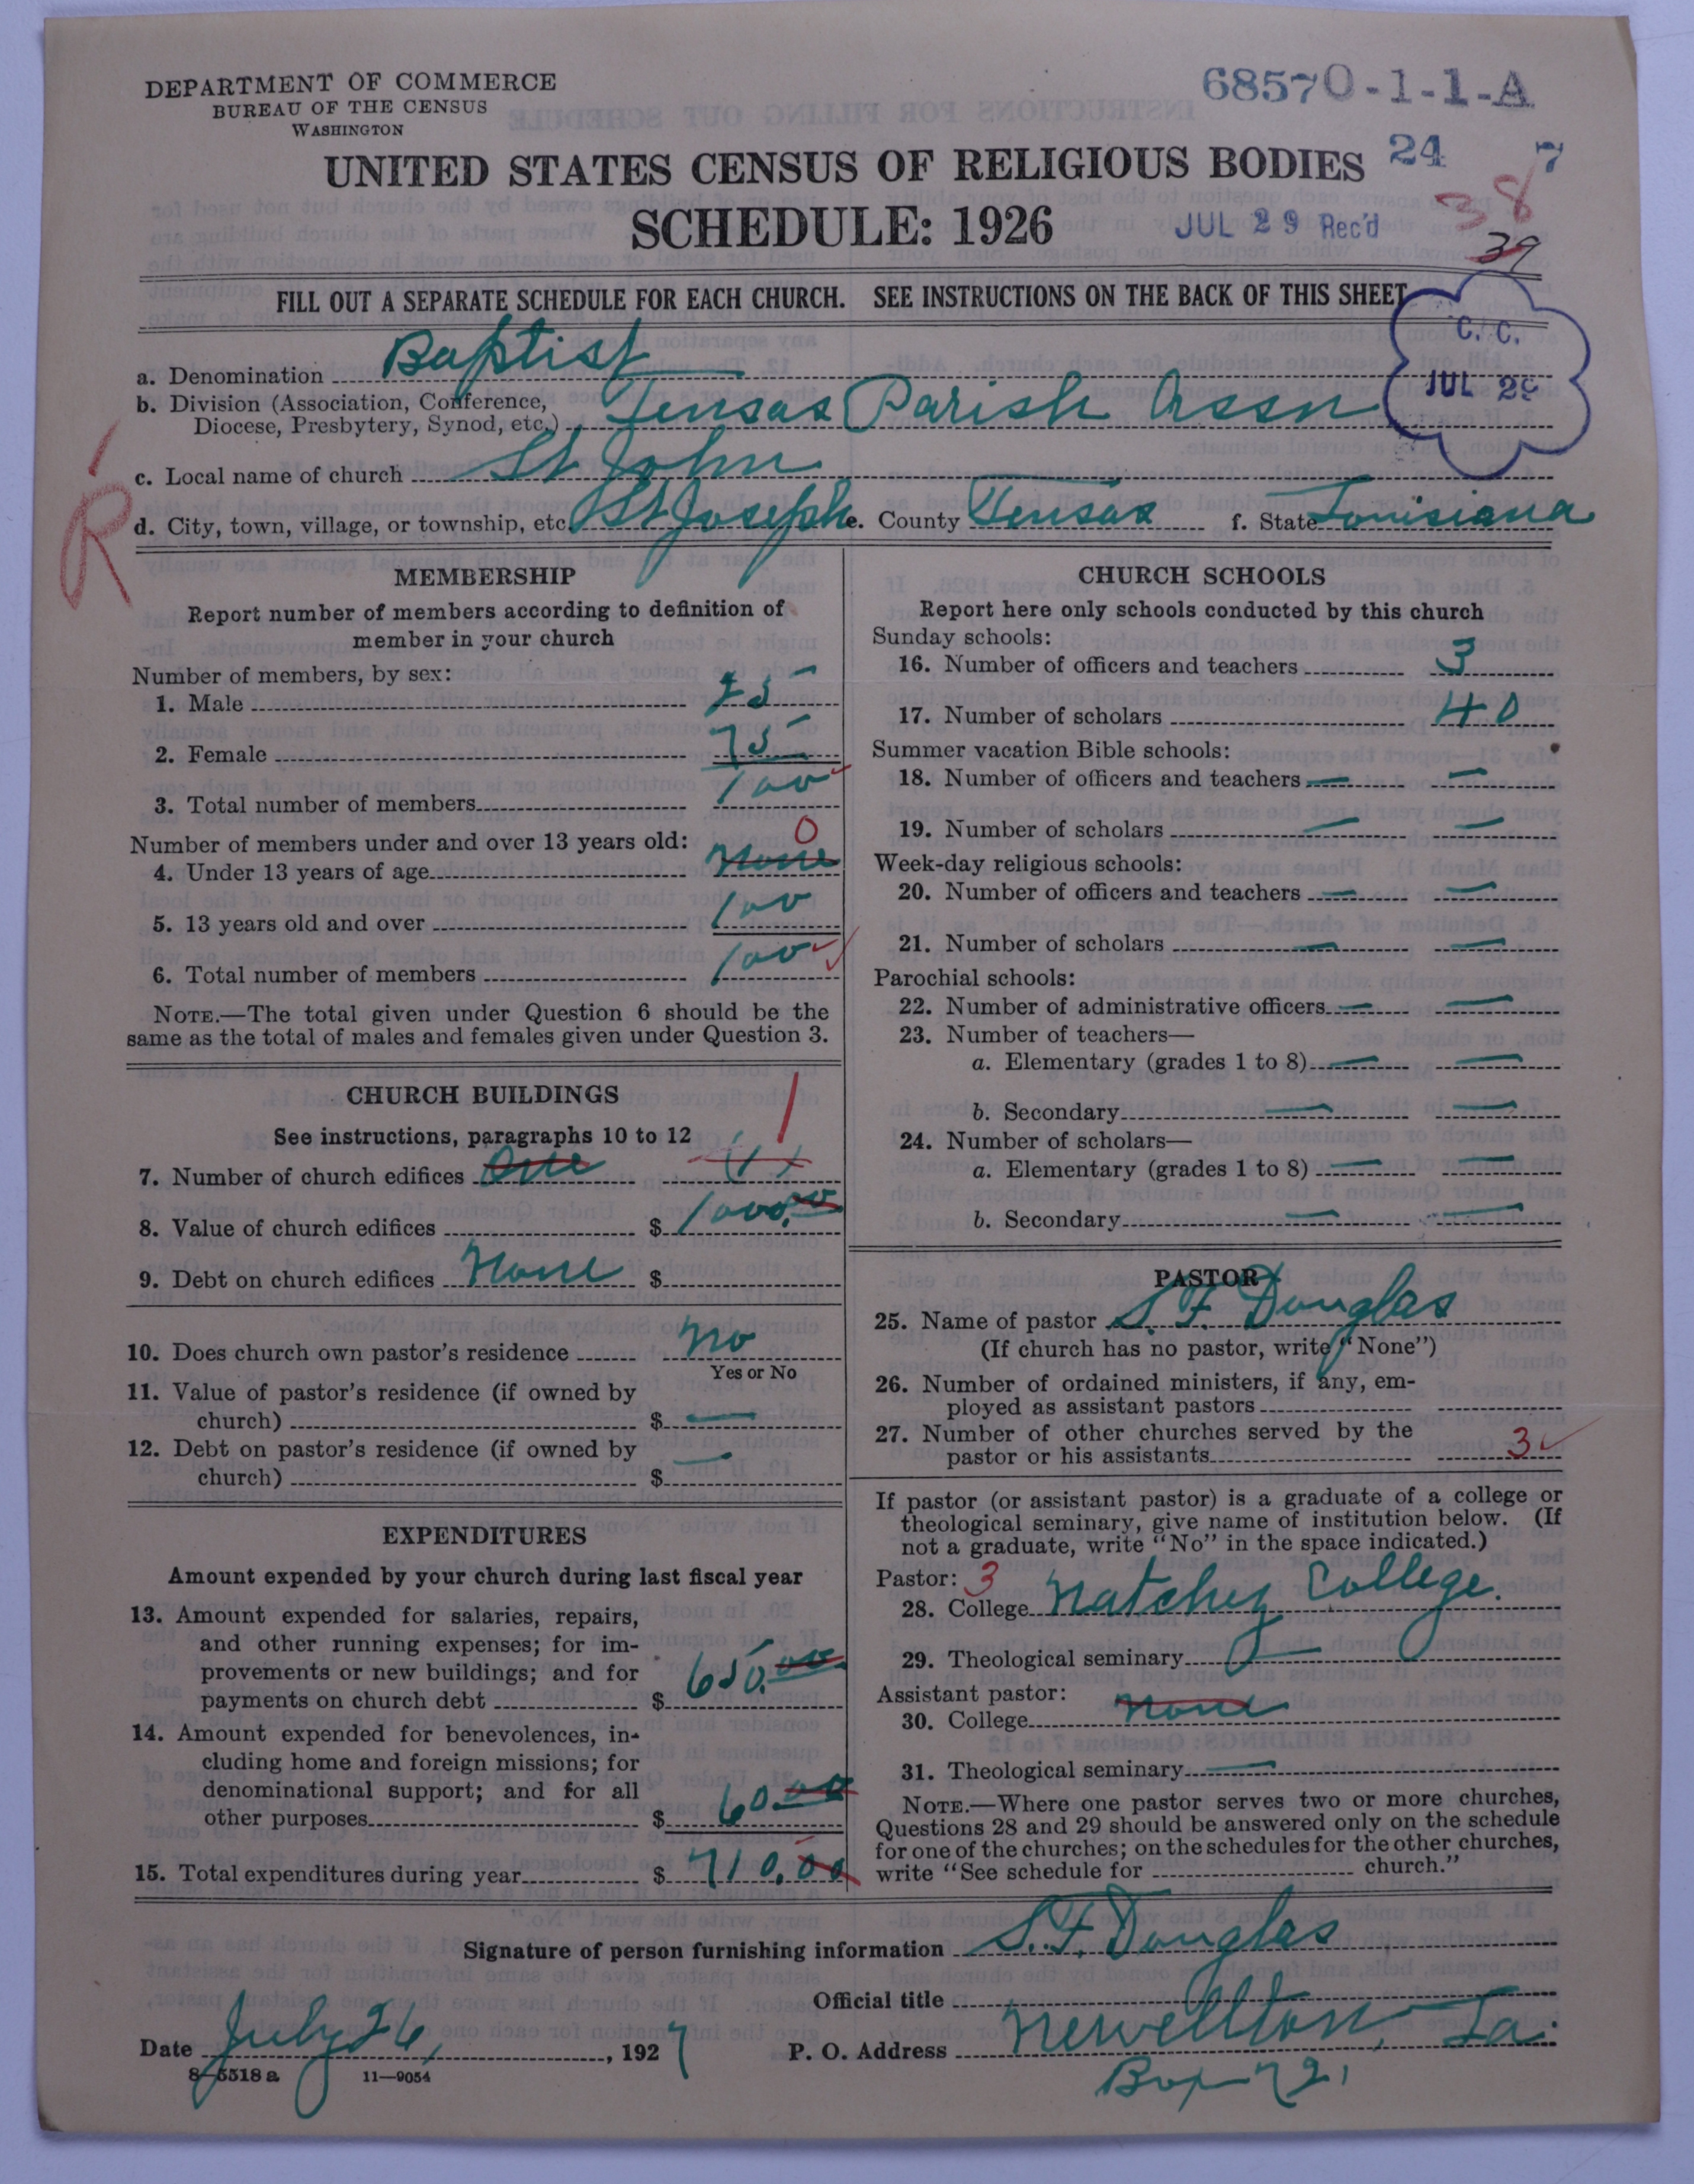 DEPARTMENT OF COMMERCE
BUREAU OF THE CENSUS
WASHINGTON
68570-1-1-A
UNITED STATES CENSUS OF RELIGIOUS BODIES
24 7
SCHEDULE: 1926
JUL 29 Rec'd
38
39
FILL OUT A SEPARATE SCHEDULE FOR EACH CHURCH. SEE INSTRUCTIONS ON THE BACK OF THIS SHEET
C. C.
JUL 29
a. Denomination Baptist
b. Division (Association, Conference,
Diocese, Presbytery, Synod, etc.) Tensas Parish Assn
c. Local name of church St John
R
d. City, town, village, or township, etc. St Joseph e. County Tensas f. State Louisiana
MEMBERSHIP
Report number of members according to definition of
member in your church
Number of members, by sex:
1. Male 25
2. Female 75
3. Total number of members 100
Number of members under and over 13 years old: 0
4. Under 13 years of age None
5. 13 years old and over 100
6. Total number of members 100
NOTE.—The total given under Question 6 should be the
same as the total of males and females given under Question 3.
CHURCH BUILDINGS
See instructions, paragraphs 10 to 12
1
7. Number of church edifices One
8. Value of church edifices $ 1000.00
9. Debt on church edifices None $
10. Does church own pastor's residence No
Yes or No
11. Value of pastor's residence (if owned by
church) $ —
12. Debt on pastor's residence (if owned by
church) $ —
EXPENDITURES
Amount expended by your church during last fiscal year
13. Amount expended for salaries, repairs,
and other running expenses; for im-
provements or new buildings; and for
payments on church debt $ 650.00
14. Amount expended for benevolences, in-
cluding home and foreign missions; for
denominational support; and for all
other purposes $ 60.00
15. Total expenditures during year $ 710.00
CHURCH SCHOOLS
Report here only schools conducted by this church
Sunday schools:
16. Number of officers and teachers 3
17. Number of scholars 40
Summer vacation Bible schools:
18. Number of officers and teachers — —
19. Number of scholars — —
Week-day religious schools:
20. Number of officers and teachers — —
21. Number of scholars — —
Parochial schools:
22. Number of administrative officers — —
23. Number of teachers—
a. Elementary (grades 1 to 8) — —
b. Secondary — —
24. Number of scholars—
a. Elementary (grades 1 to 8) — —
b. Secondary — —
PASTOR
25. Name of pastor S. F. Douglas
(If church has no pastor, write "None")
26. Number of ordained ministers, if any, em-
ployed as assistant pastors
27. Number of other churches served by the
pastor or his assistants 3
If pastor (or assistant pastor) is a graduate of a college or
theological seminary, give name of institution below. (If
not a graduate, write "No" in the space indicated.)
Pastor: 3
28. College Natchez College.
29. Theological seminary —
Assistant pastor:
30. College None
31. Theological seminary —
NOTE.—Where one pastor serves two or more churches,
Questions 28 and 29 should be answered only on the schedule
for one of the churches; on the schedules for the other churches,
write "See schedule for church."
Signature of person furnishing information S. F. Douglas
Official title
Date July 26, 1927 P. O. Address Newellton, La.
8-5518 a 11-9054
Box 721